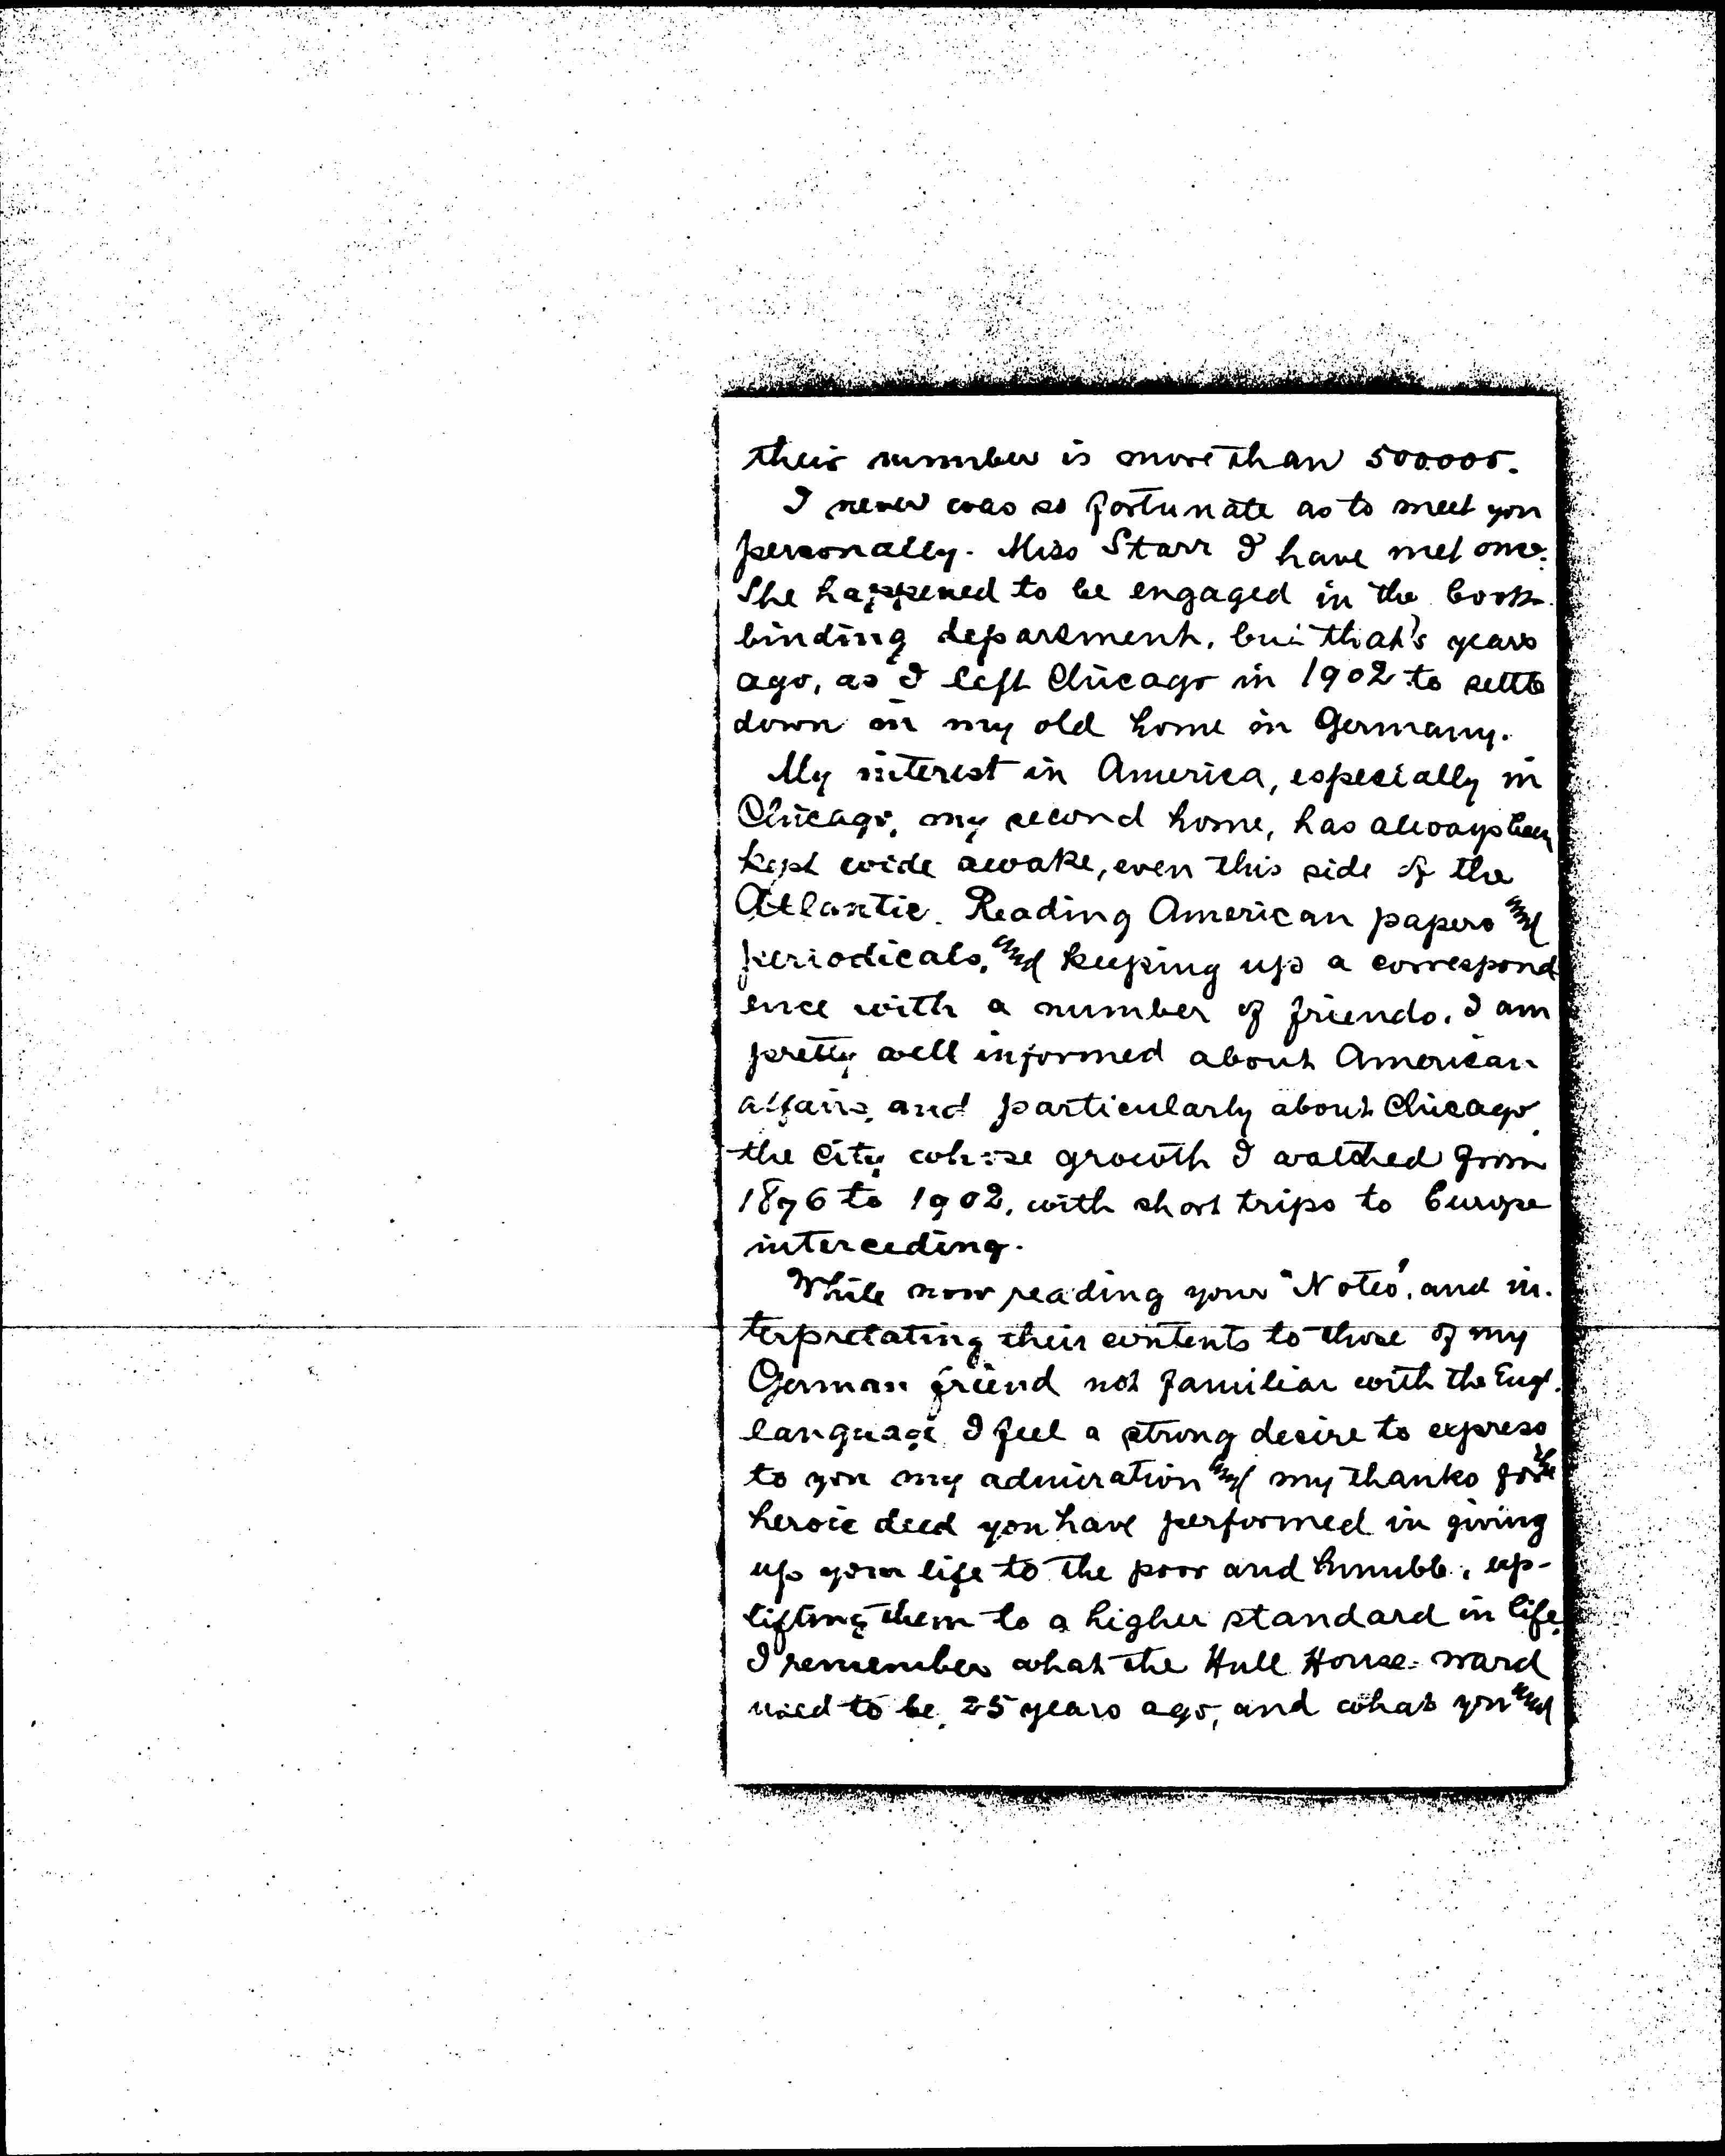 their number is more than 500.000.
I never was so fortunate as to meet you
personally. Miss Starr I have met once.
She happened to be engaged in the book-
binding department, but that's years
ago, as I left Chicago in 1902 to settle
down in my old home in Germany.
My interest in America, especially in
Chicago, my second home, has always been
kept wide awake, even this side of the
Atlantic. Reading American papers and
periodicals, and keeping up a correspond
ence with a number of friends, I am
pretty well informed about American
affairs, and particularly about Chicago,
the City whose growth I watched from
1876 to 1902, with short trips to Europe
interceding.
While now reading your "Notes", and in-
terpretating their contents to those of my
German friend not familiar with the Engl.
language I feel a strong desire to express
to you my admiration and my thanks for the
heroic deed you have performed in giving
up your life to the poor and humble, up-
lifting them to a higher standard in life.
I remember what the Hull House-ward
used to be, 25 years ago, and what you and